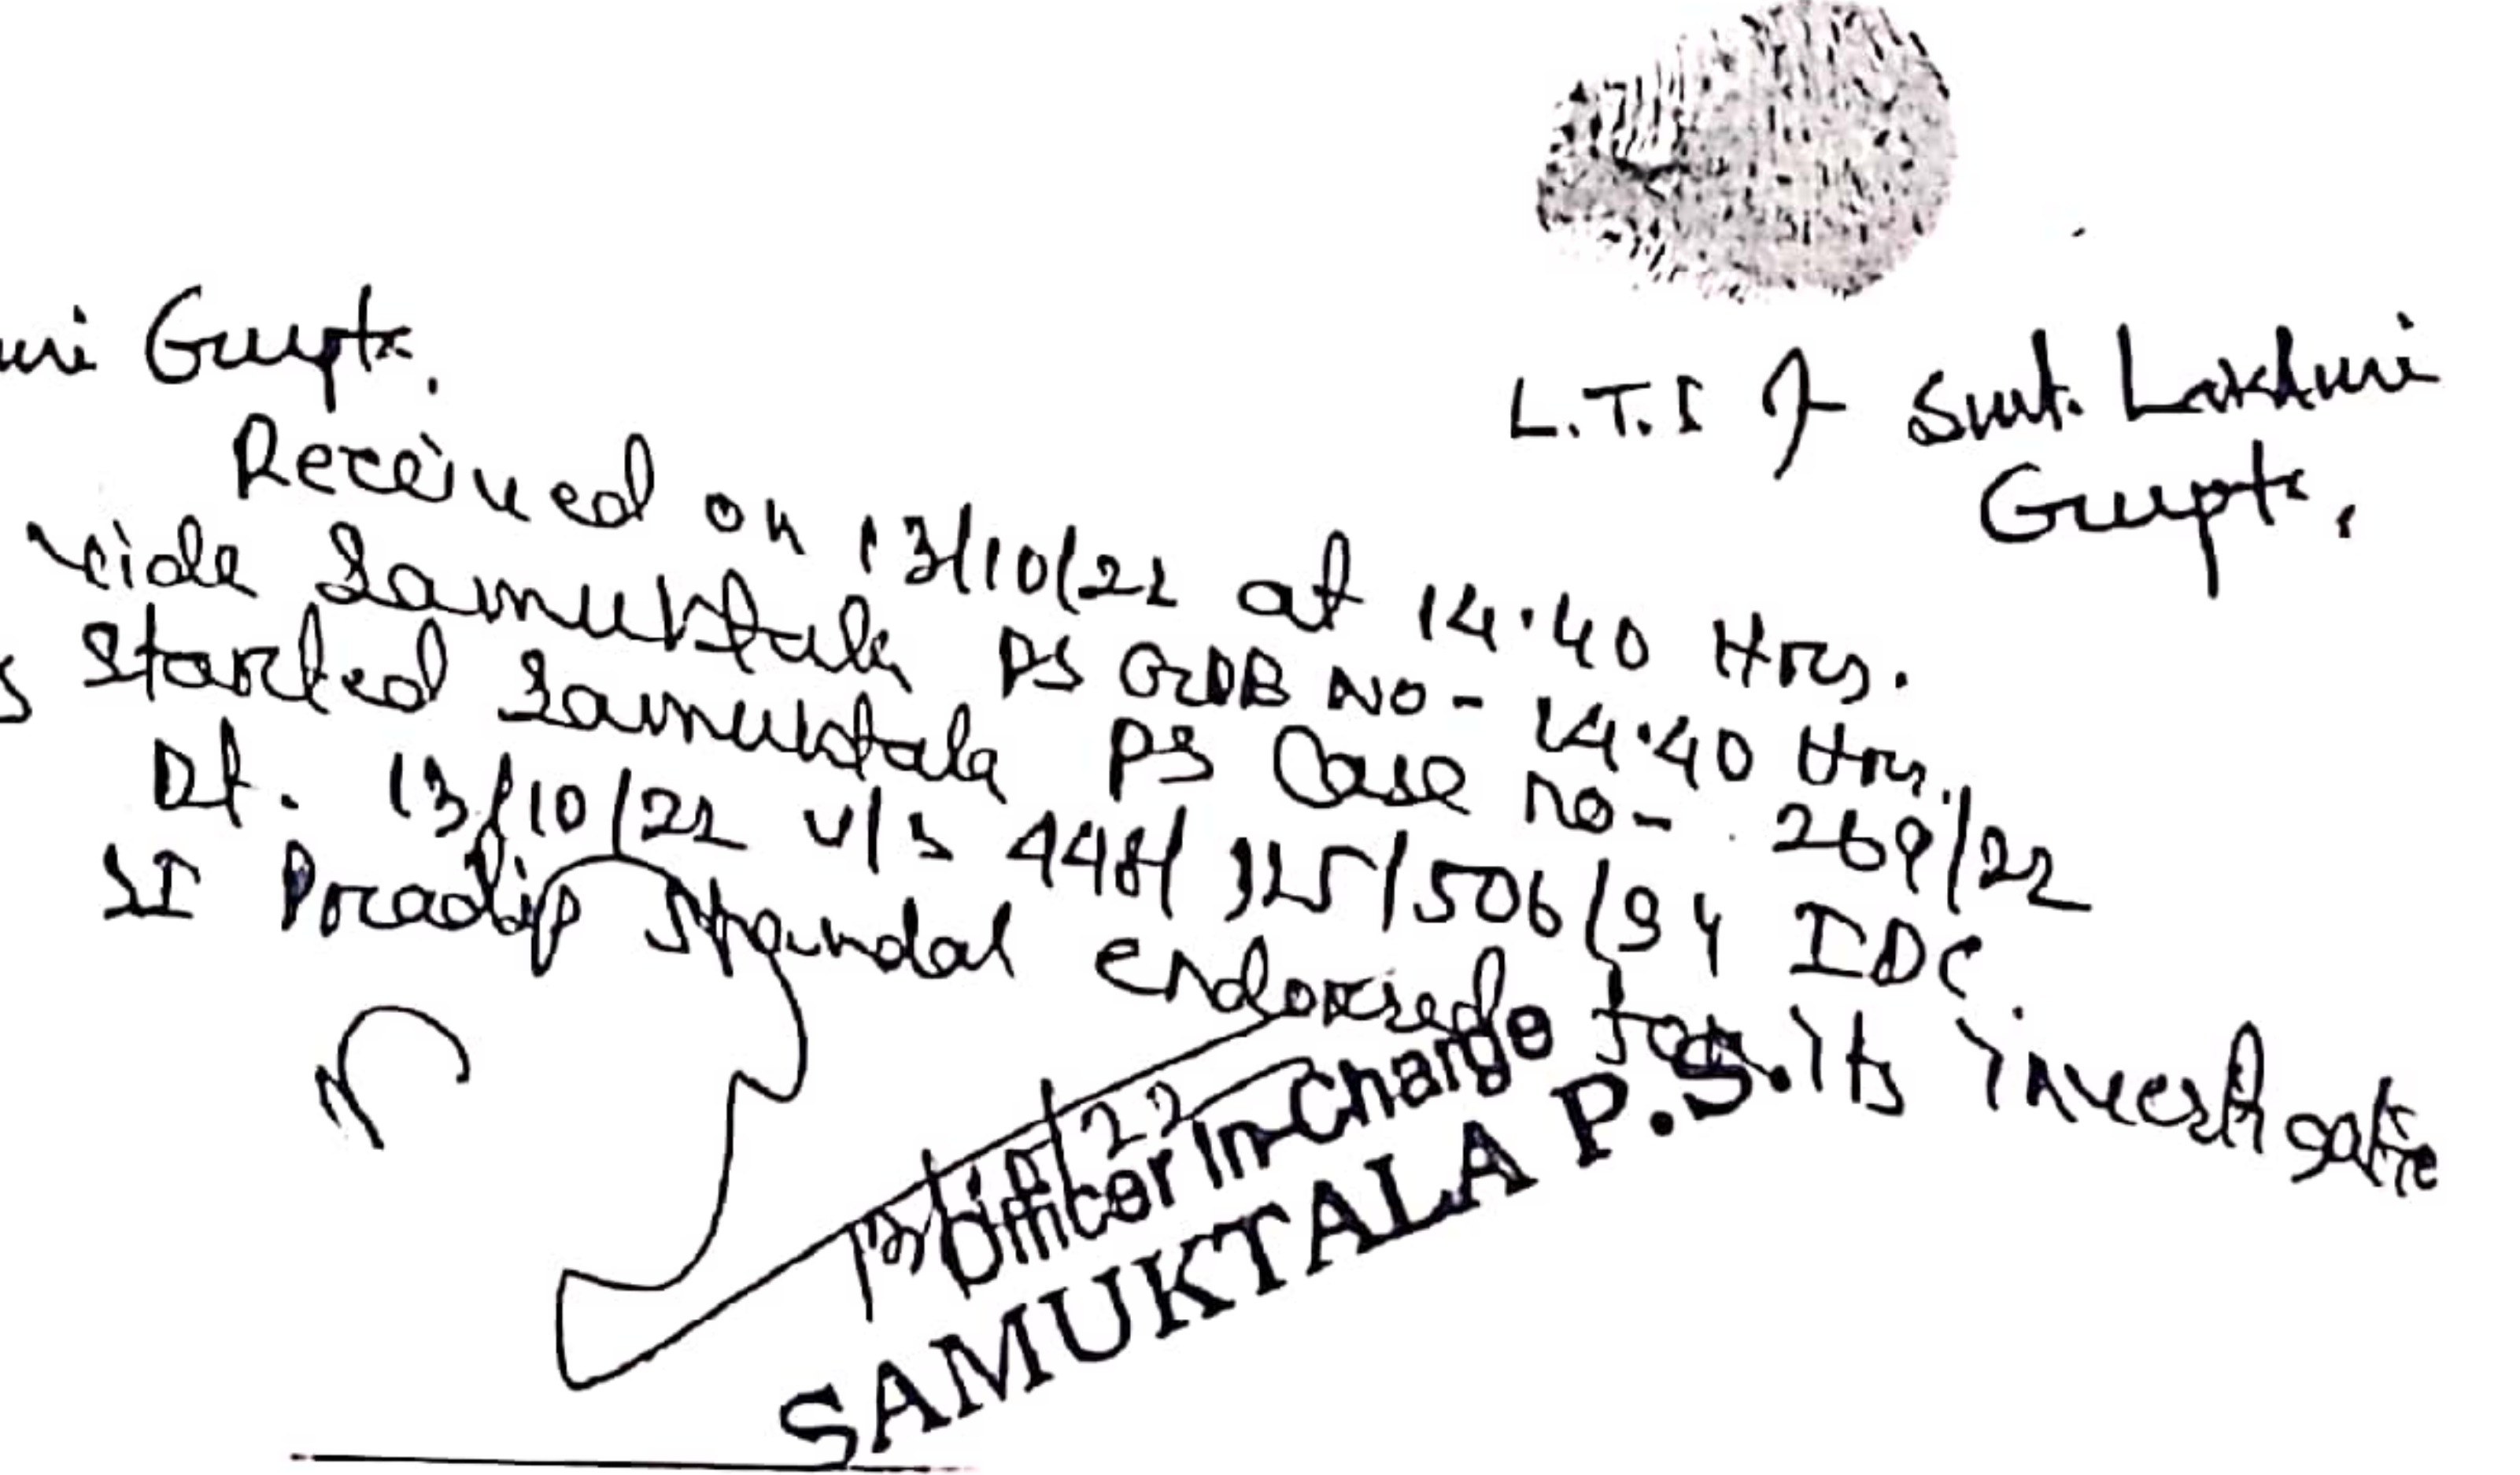 uri Gupta.
L.T.I of Smt. Lakhmi
Gupta.
Received on 13/10/22 at 14.40 Hrs.
vide Samuktala PS GDB NO- 14.40 Hrs.
s Started Samuktala PS Case no- 269/22
Dt. 13/10/22 u/s 448/325/506/34 IPC.
SI Pradip Mondal endorsed for its investigatie
13/10/22
Officer In-Charge
SAMUKTALA P.S.